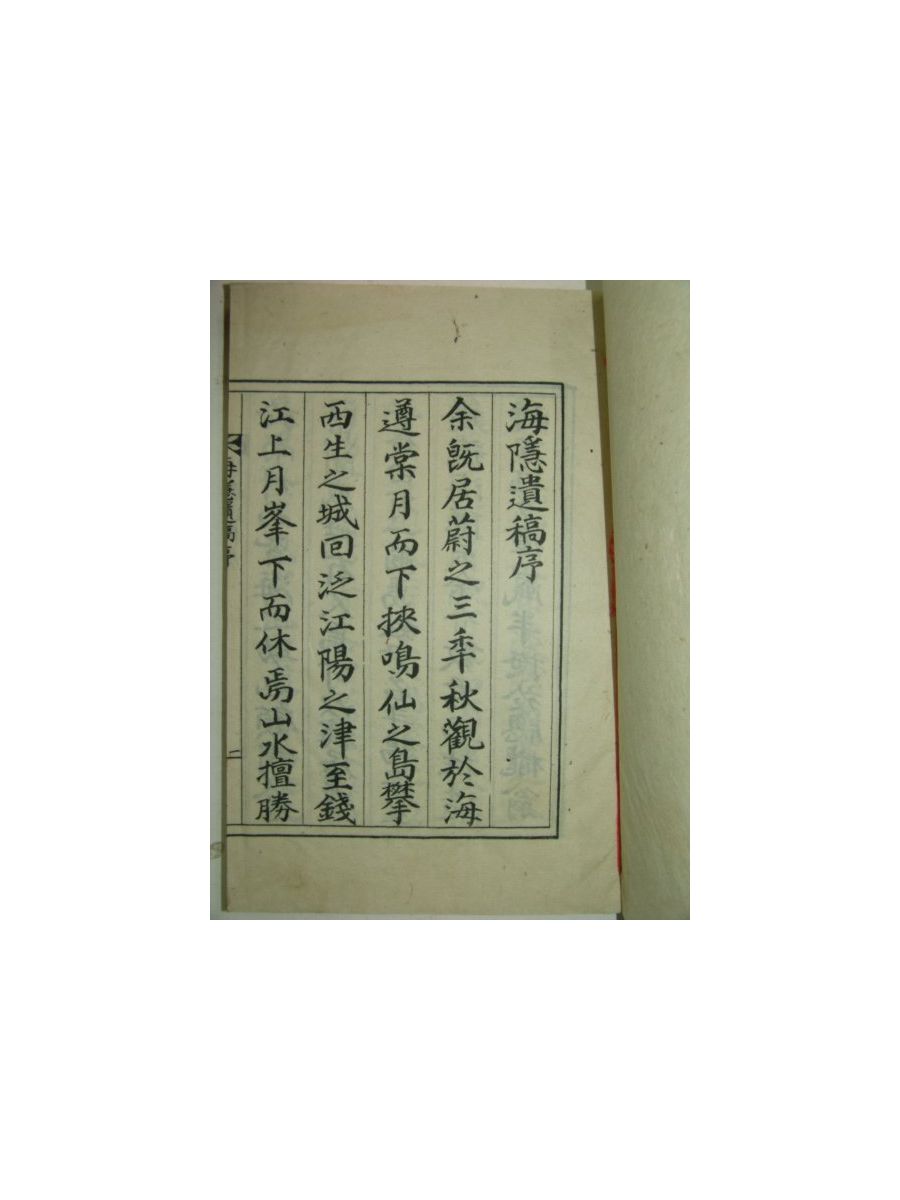 海隱遺稿序
余旣居蔚之三秊秋觀於海
遵棠月而下挾鳴仙之島攀
西生之城回泛江陽之津至錢
江上月峯下而休焉山水擅勝
海隱遺稿序
一